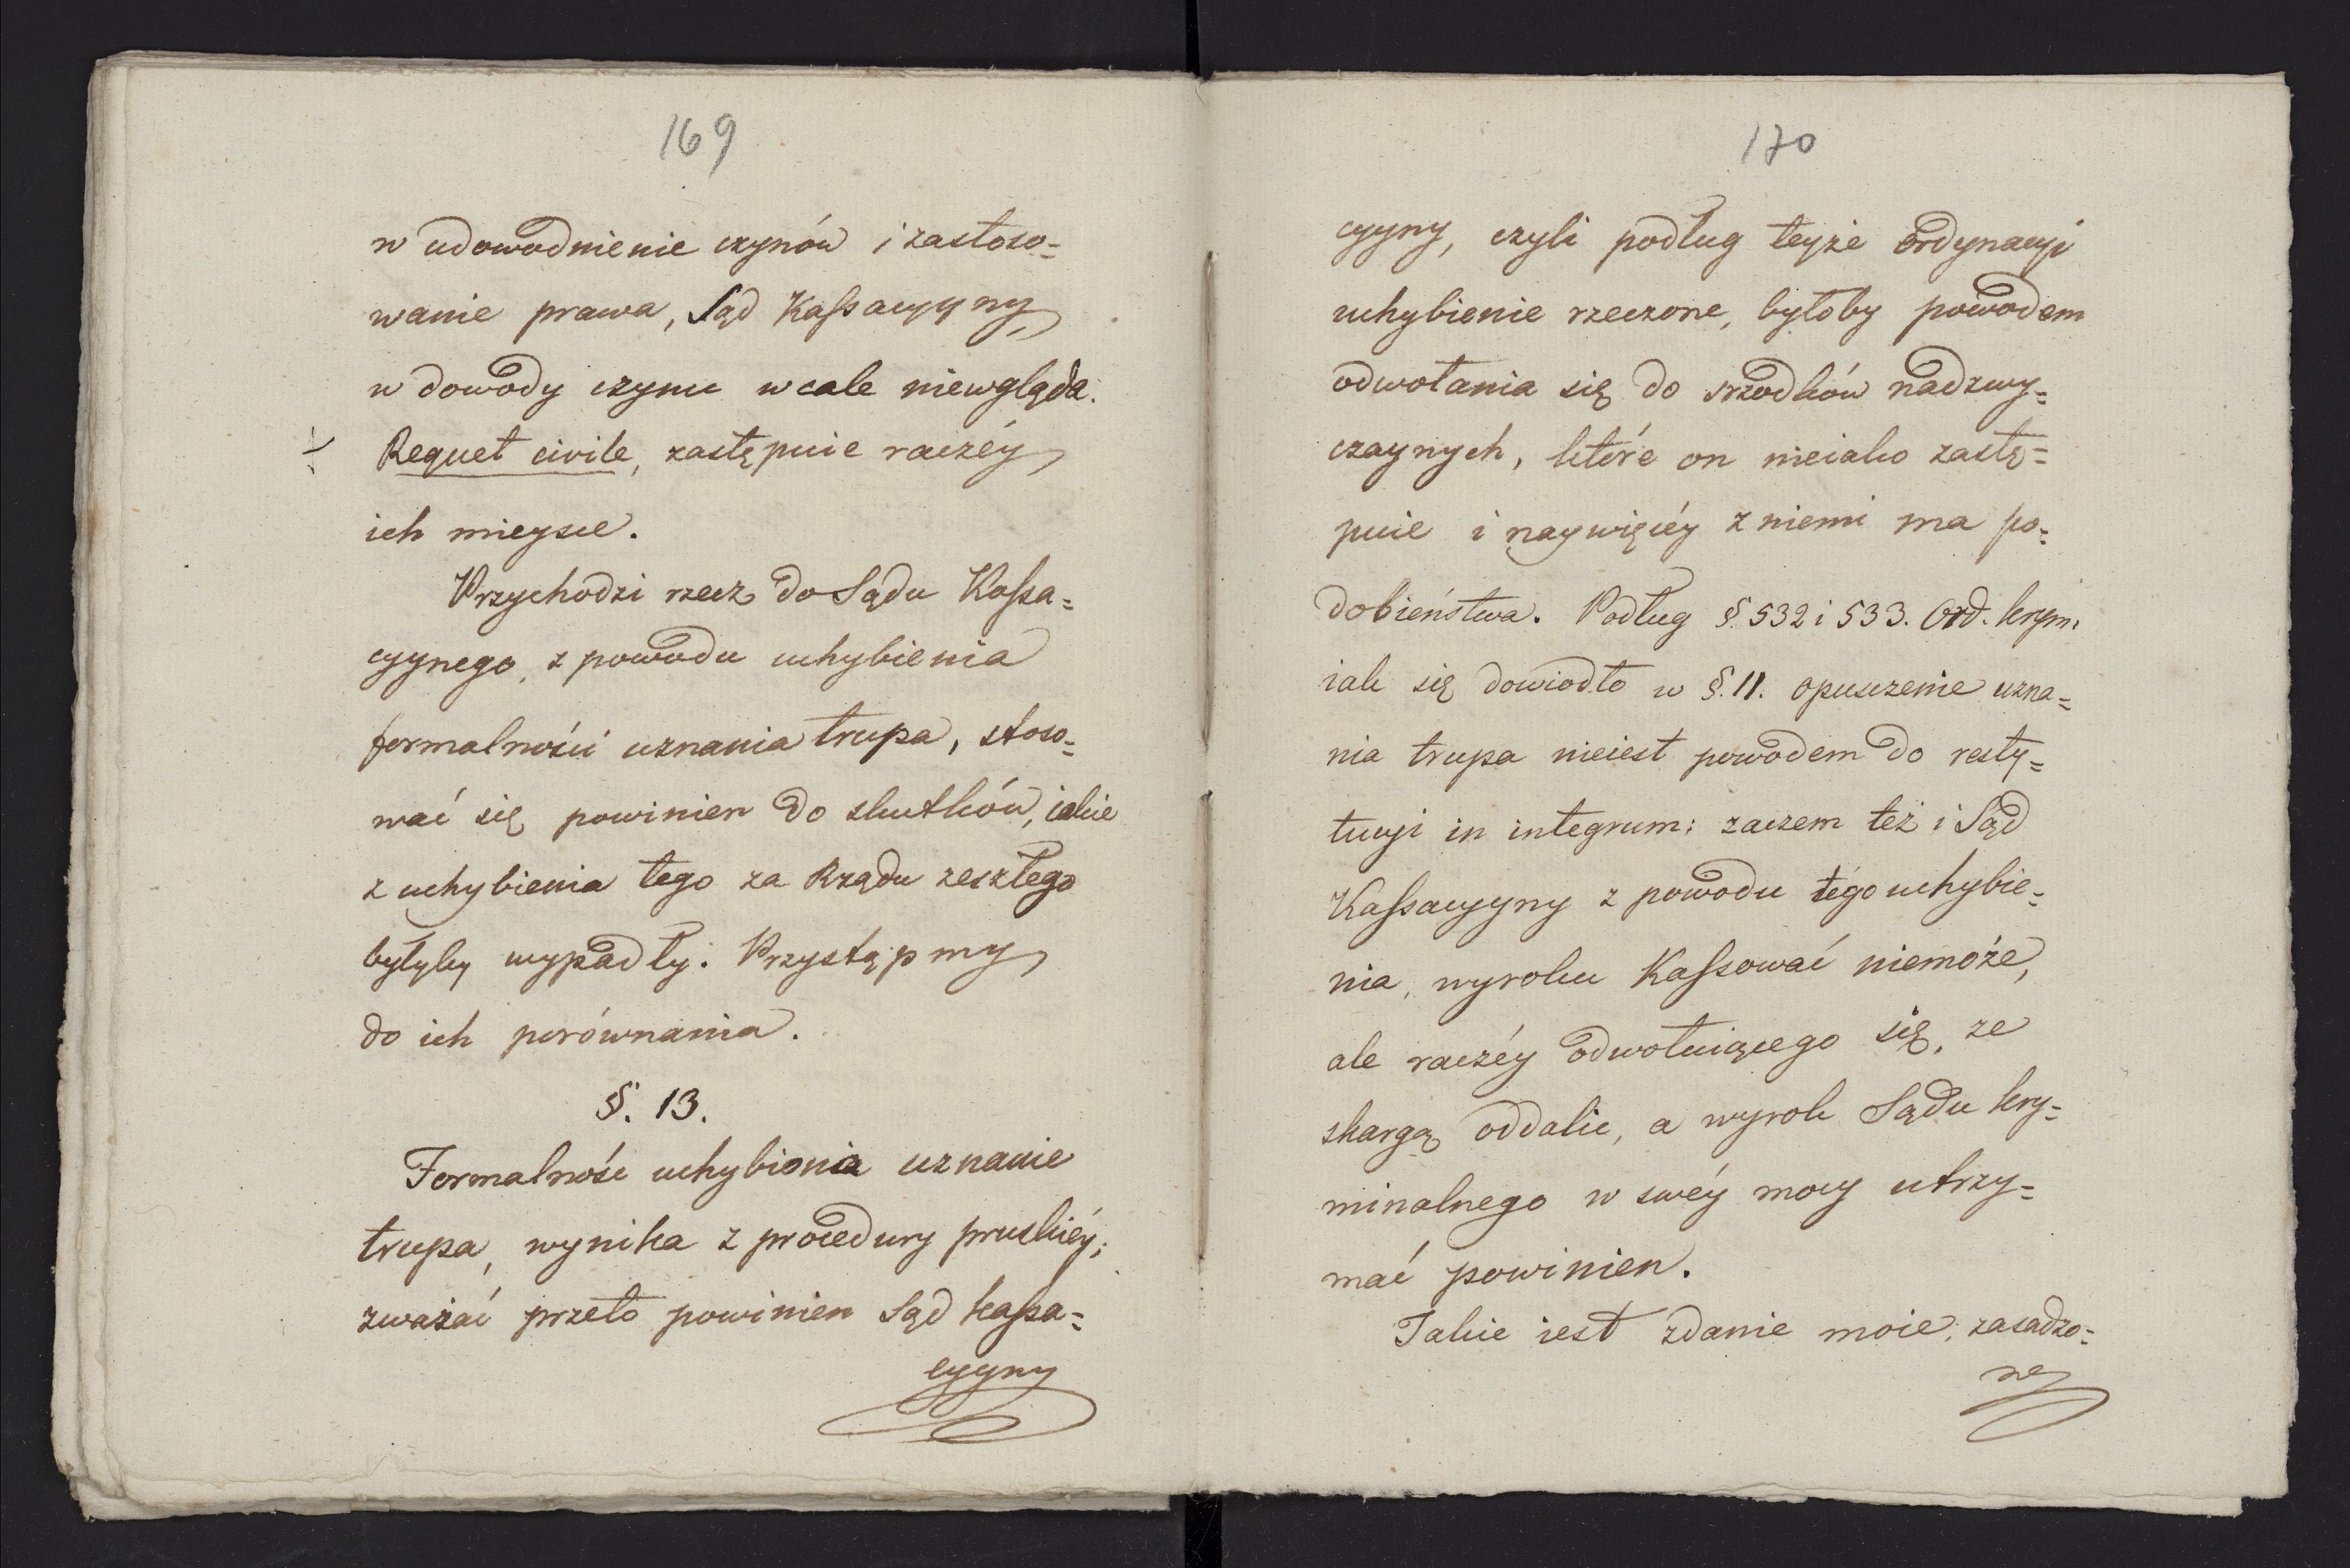 169
w udowodnienie czynów i zastoso=
wanie prawa, Sąd Kassacyyny
w dowody czynu wcale niewgląda.
Requet civile, zastępuie raczéy
ich mieysce.
Przychodzi rzecz do Sądu Kassa=
cyynego, z powodu uchybienia
formalności uznania trupa, stoso=
wać się powinien do skutków, iakie
z uchybienia tego za Rządu zeszłego
byłyby wypadły. Przystąpmy
do ich porównania.
§. 13.
Formalność uchybionia uznanie
trupa, wynika z procedury pruskiéy;
zważać przeto powinien Sąd kassa=
cyyny
170
cyyny, czyli podług teyże ordynacyi
uchybienie rzeczone, byłoby powodem
odwołania się do srzodków nadzwy=
czaynych, któré on nieiako zastę=
puie i naywięcéy z niemi ma po=
dobieństwa. Podług §. 532 i 533. Ord. krym.
iak się dowiodło w §. 11. opuszczenie uzna=
nia trupa nieiest powodem do resty=
tucyi in integrum; zaczem też i Sąd
Kassacyyny z powodu tégo uchybie=
nia, wyroku Kassować niemoże,
ale raczéy odwołuiącego się, ze
skargą oddalic, a wyrok Sądu kry=
minalnego w swéy mocy utrzy=
mać powinien.
Takie iest zdanie moie, zasadzo=
ne